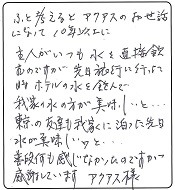 ふと考えるとアクアスのお世話
になって10年以上に
主人がいつも水を直接飲
むのですが先日旅行に行った
時ホテルの水を飲んで
我家の水の方が美味しいと…
東京の友達も我家に泊った先日
水が美味しいッと…
普段何も感じなかったのですがつ
感謝しています アクアス様